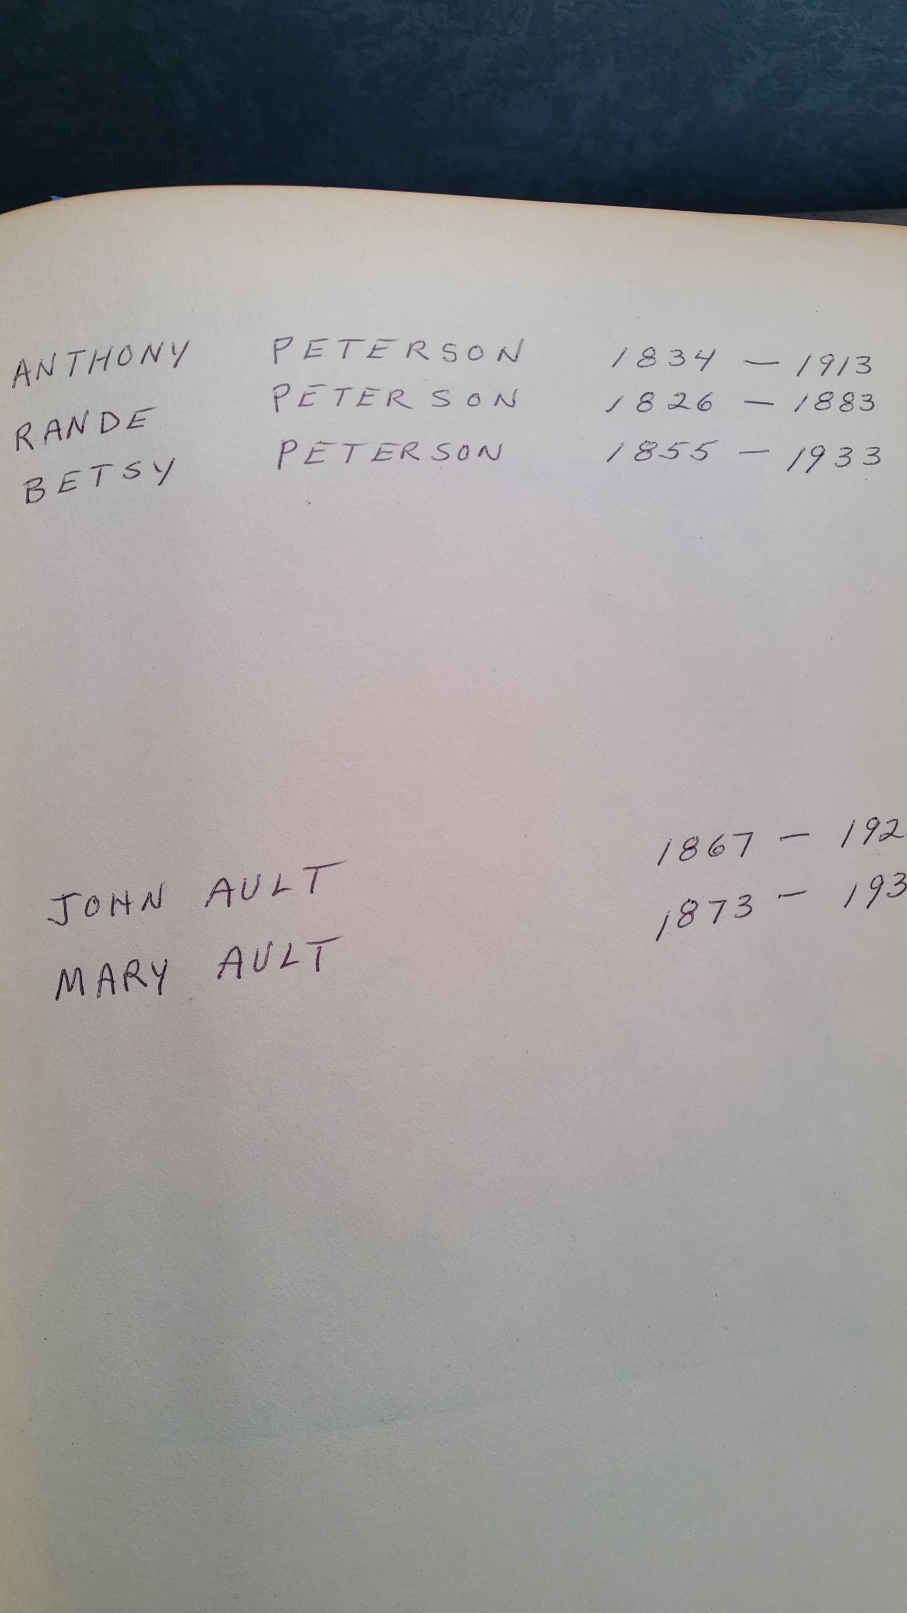 ANTHONY PETERSON 1834 - 1913
RANDE PETERSON 1826 - 1883
BETSY PETERSON 1855 - 1933
JOHN AULT 1867 - 192
MARY AULT 1873 - 193